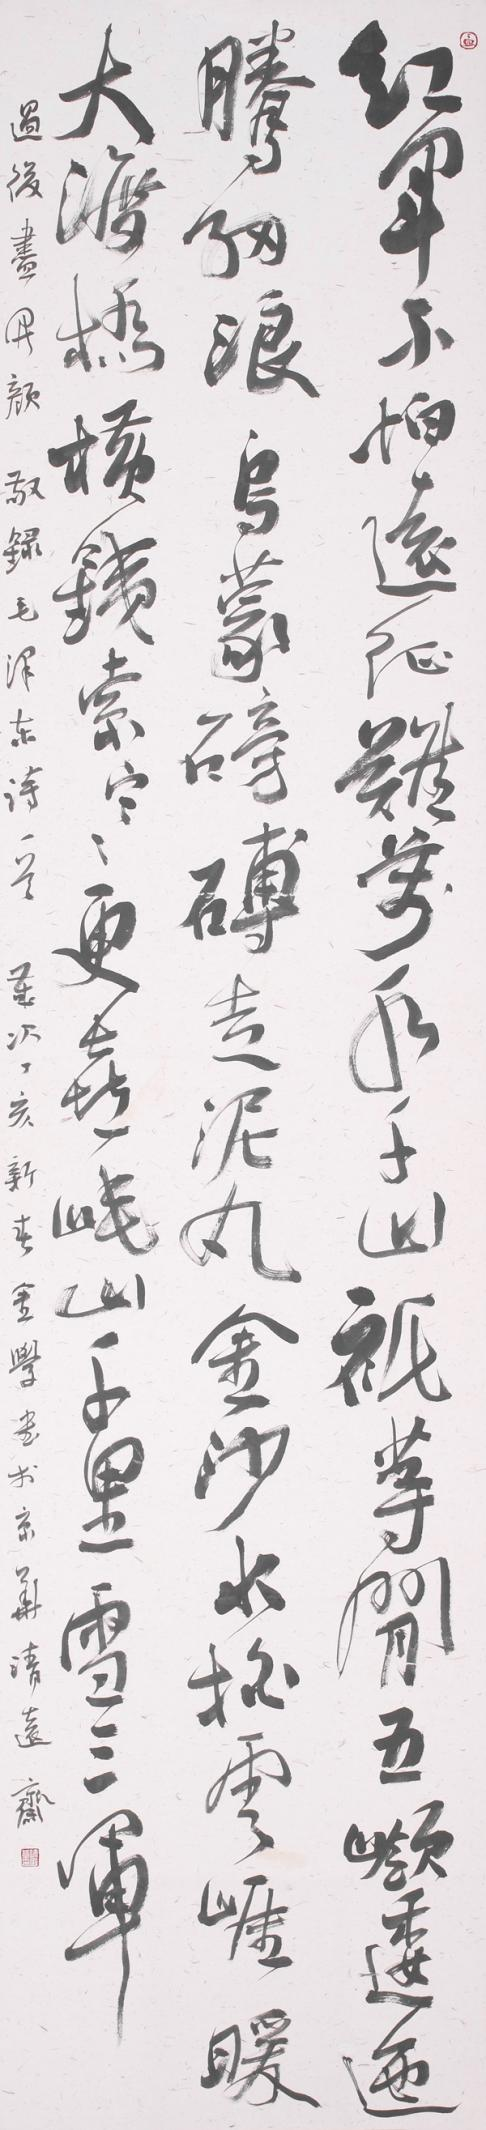 紅軍不怕遠征難萬水千山祇等閒五嶺逶迤
騰細浪烏蒙磅礴走泥丸金沙水拍雲崖暖
大渡橋橫鐵索寒〻更喜岷山千里雪三軍
過後盡開顏 敬錄毛泽东诗一首 歲次丁亥新春金學書於京華清遠齋